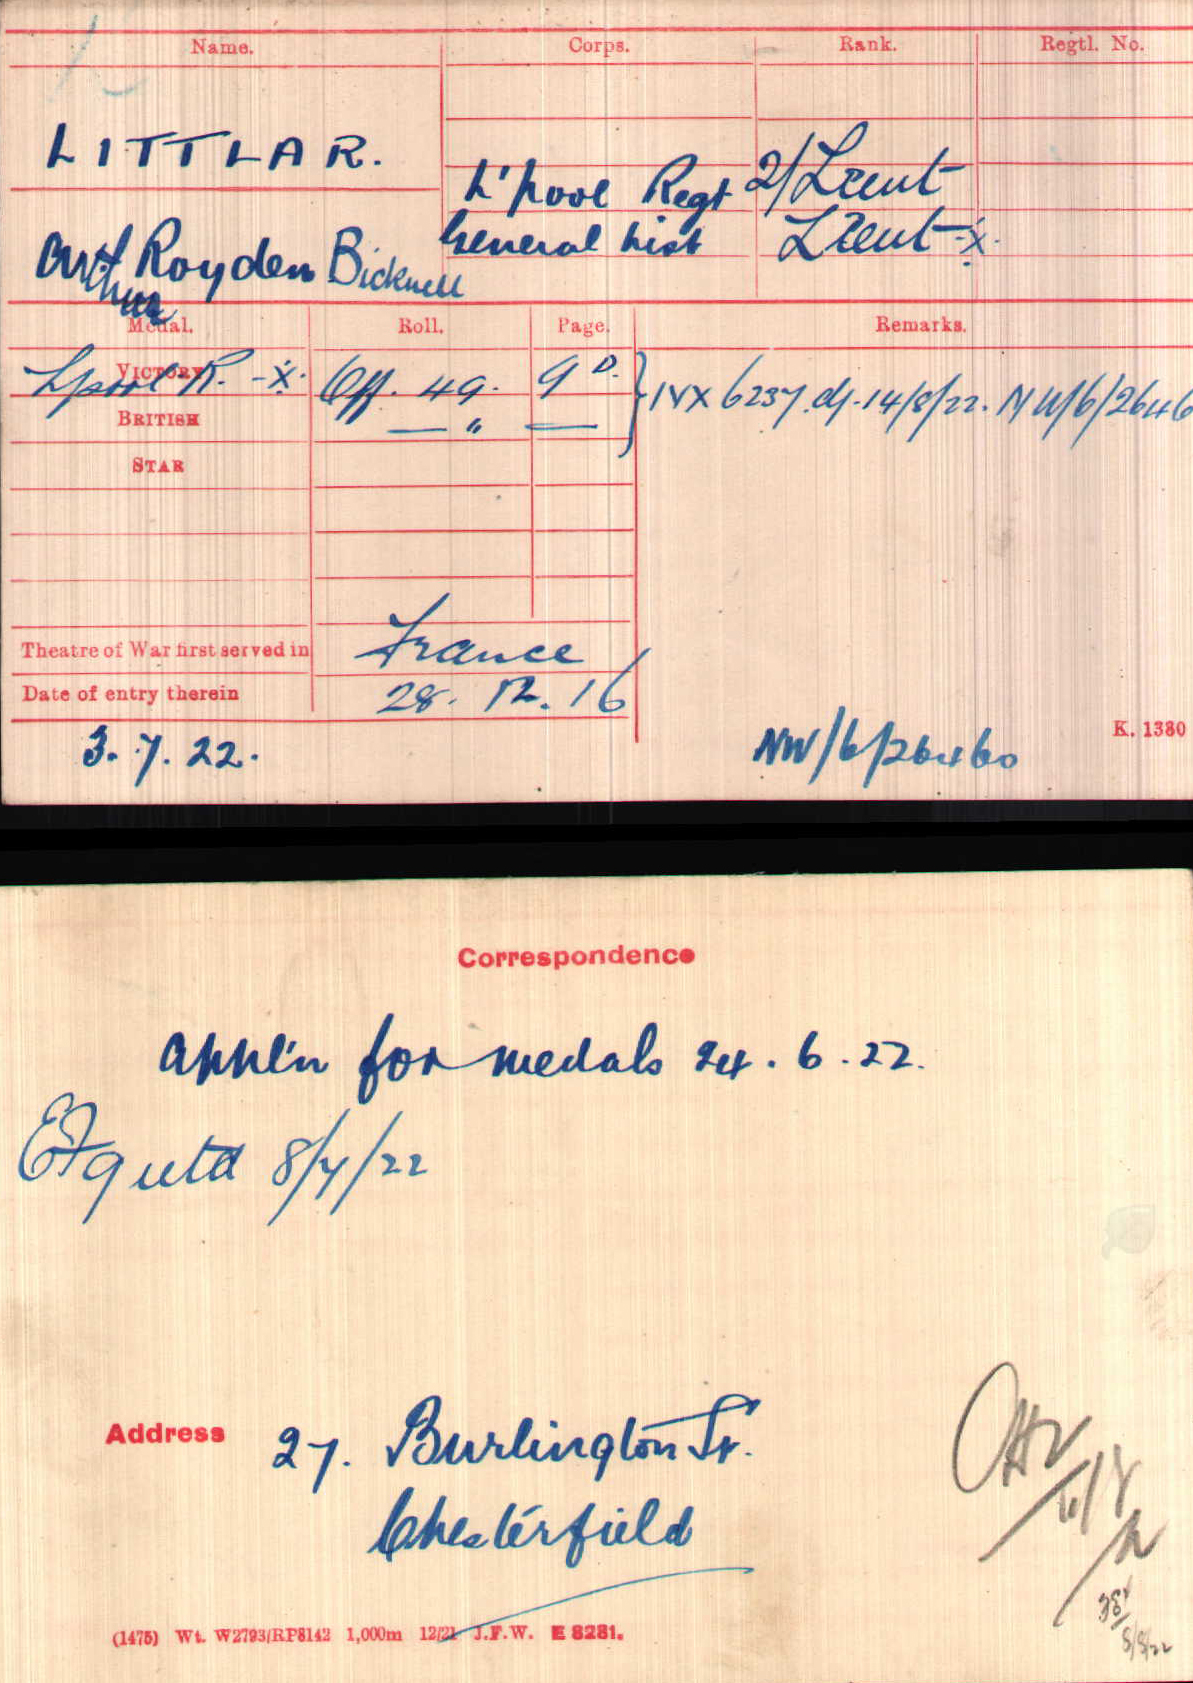 Name. Corps. Rank. Regtl. No.
LITTLAR.
L'pool Regt 2/Lieut
General List Lieut -x-
Art Royden Bicknell
Arthur
Medal. Roll. Page. Remarks.
VICTORY L'pool R. -x- Off. 49. 9 D. } IVX 6237. d/- 14/8/22. NW/6/2646
BRITISH — " —
STAR
Theatre of War first served in France
Date of entry therein 28. 12. 16
3. 7. 22. NW/6/26460
K. 1380
Correspondence
Appl'n for medals 24. 6. 22.
8/7/22
Address 27. Burlington St.
Chesterfield
(1475) Wt. W2793/RP8142 1,000m 12/21 J.F.W. E 8281.
8/8/22